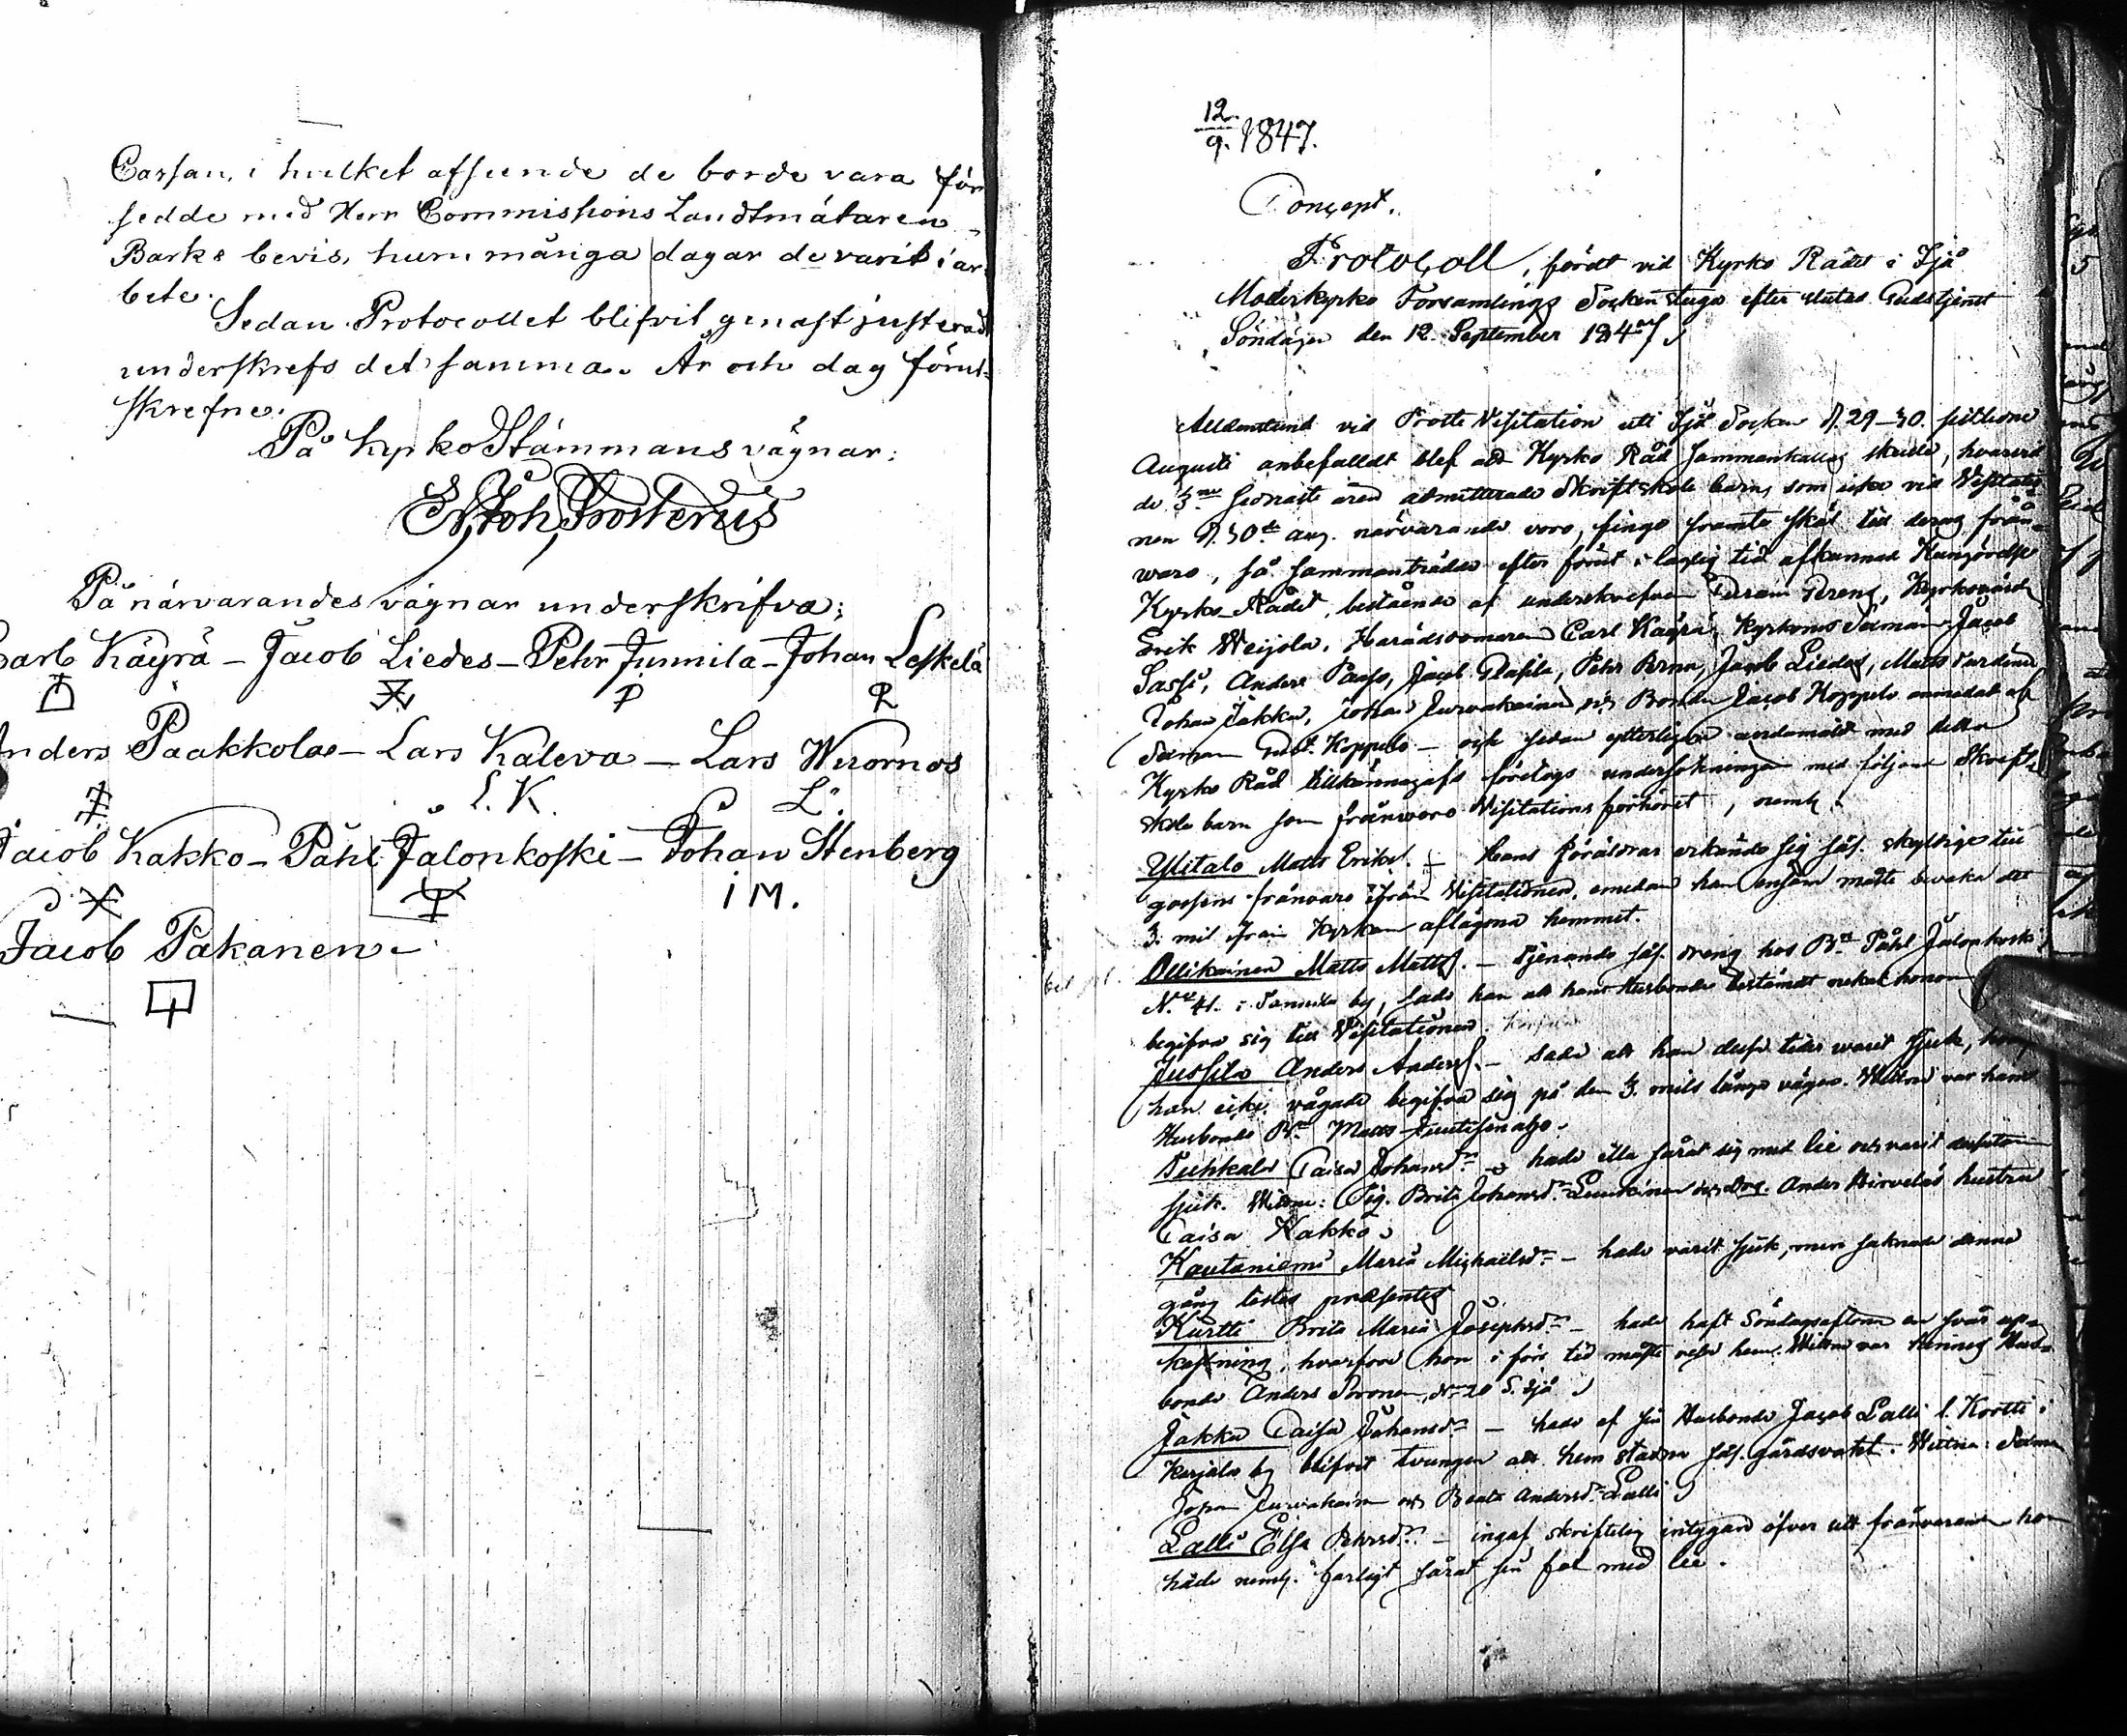 Cassan, i hvilket afseende de borde vara för
sedde med Herr Commissions Landtmätaren
Barks bevis, huru många dagar de varit i ar-
bete.
Sedan Protocollet blifvit genast justeradt
underskrefs det samma. År och dag förut-
skrefne.
På Kyrko Stämmans vägnar:
Joh Frosterus
På närvarandes vägnar underskrifva:
Carl Käyrä – Jacob Liedes – Pehr Junnila – Johan Leskelä
P
Anders Paakkola – Lars Kaleva – Lars Wuornos
L. K. L.
Jacob Kakko – Påhl Jalonkoski – Johan Stenberg
I M.
Jacob Pakanen –
12/9. 1847.
Concept.
Protocoll, fördt vid Kyrko Rådet i Ijå
Moderkyrko Församlings Sockenstuga efter slutad Gudstjenst
Söndagen den 12 September 1847
Alldenstund vid Visitation uti Ijå Socken d. 29–30. sistledne
Augusti anbefalldt blef att Kyrko Råd sammankallas skulle, hvarvid
de 3ne senaste åren admitterade Skriftskole barn, som icke vid Visitatio
nen d. 30de aug. närvarande voro, finge framte skäl till deras från-
waro, så sammanträdde efter förut i laglig tid afkunnad Kungörelse
Kyrko Rådet, bestående af underskrefven Kyrkovärd
Erik Weijola, Häradsdomaren Carl Käyrä, Kyrkovärd Seman Jacob
Sassi, Anders Paaso, Jacob Pehr Jacob Liedes, Matts
Johan Jakku, Johan Turvakainen och Bonden Jacob Koppelo anmodad af
Seman Gust. Koppelo – och sedan ytterligare ändamålet med detta
Kyrko Råd tillkännagafs företogs undersökningen med följande Skrift-
skole barn som frånworo Visitations förhöret, neml.
Ylitalo Matts Eriks. – Hans föräldrar erkände sig sjelf skyldige till
gossens frånvaro ifrån Visitationen, emedan han ensam måtte bevaka det
3. mil ifrån Kyrkan aflägsna hemmet.
Ollikainen Matts Matts. – tjenande dräng hos Bn Påhl Jalonkoski
N:o 41. i Tannila by, sade han att hans Husbonde bestämdt nekat honom
begifva sig till Visitationen.
Jussila Anders Anders. – Sade att han dessa tider warit sjuk,
han icke vågade begifva sig på den 3. mils långa vägen. Wittne var hans
Husbonde Bn Matts
Puhkala Caisa Johansdr – hade illa sårat sig med lie och varit dessutom
sjuk. Wittne: Pig. Brita Johansdr och Anders Hirvelas hustru
Caisa Kakko.
Kautaniemi Maria Michaelsdr – hade varit sjuk, men saknade denna
gång testes præsentes
Kurtti Brita Maria Josephsdr – hade haft Söndagsaftonen en svår upp-
kastning, hvarföre hon i förtid måste resa hem. Wittne var hennes Hus-
bonde Anders N:o 20 S. Ijå
Jakku Caisa Johansdr – hade af sin Husbonde Jacob Lalli l. Kortti i
Karjala by blifvit tvungen att hemstadna gårdsvaktet. Wittne: Seman
Johan Turvakainen och Beata Andersdr Lalli
Lalli Elsa Pehrsdr – ingaf skriftelig intygan öfver sitt frånvarande hon
hade neml. farligt sårat sin fot med lie.